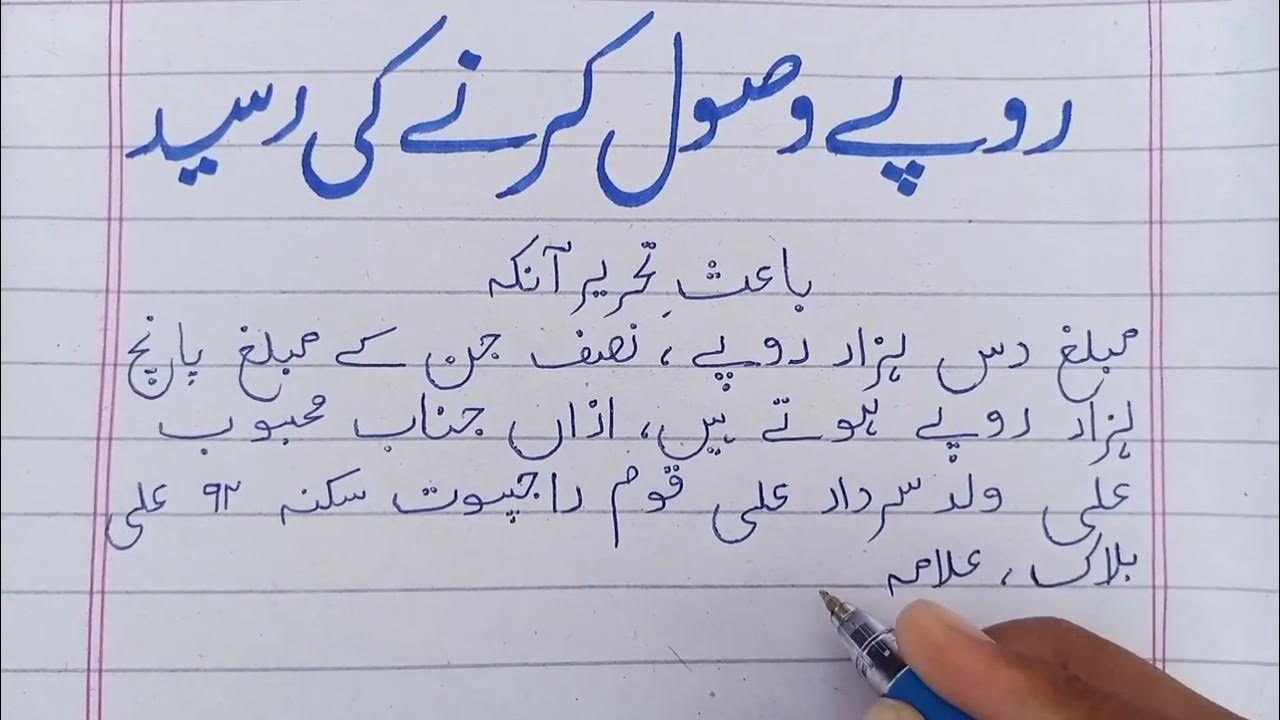 روپے وصول کرنے کی رسید
باعثِ تحریر آنکہ
مبلغ دس ہزار روپے، نصف جن کے مبلغ پانچ
ہزار روپے ہوتے ہیں، ازاں جناب محبوب
علی ولد سردار علی قوم راجپوت سکنہ ۹۲ علی
بلاک، علامہ